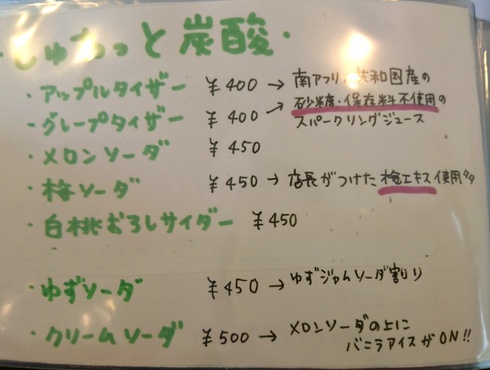 ・しゅわっと炭酸・
・アップルタイザー ¥400 → 南アフリカ共和国産の
・グレープタイザー ¥400 → 砂糖・保存料不使用の
スパークリングジュース
・メロンソーダ ¥450
・梅ソーダ ¥450 → 店長がつけた梅エキス使用
・白桃おろしサイダー ¥450
・ゆずソーダ ¥450 → ゆずジャムソーダ割り
・クリームソーダ ¥500 → メロンソーダの上に
バニラアイスがON!!